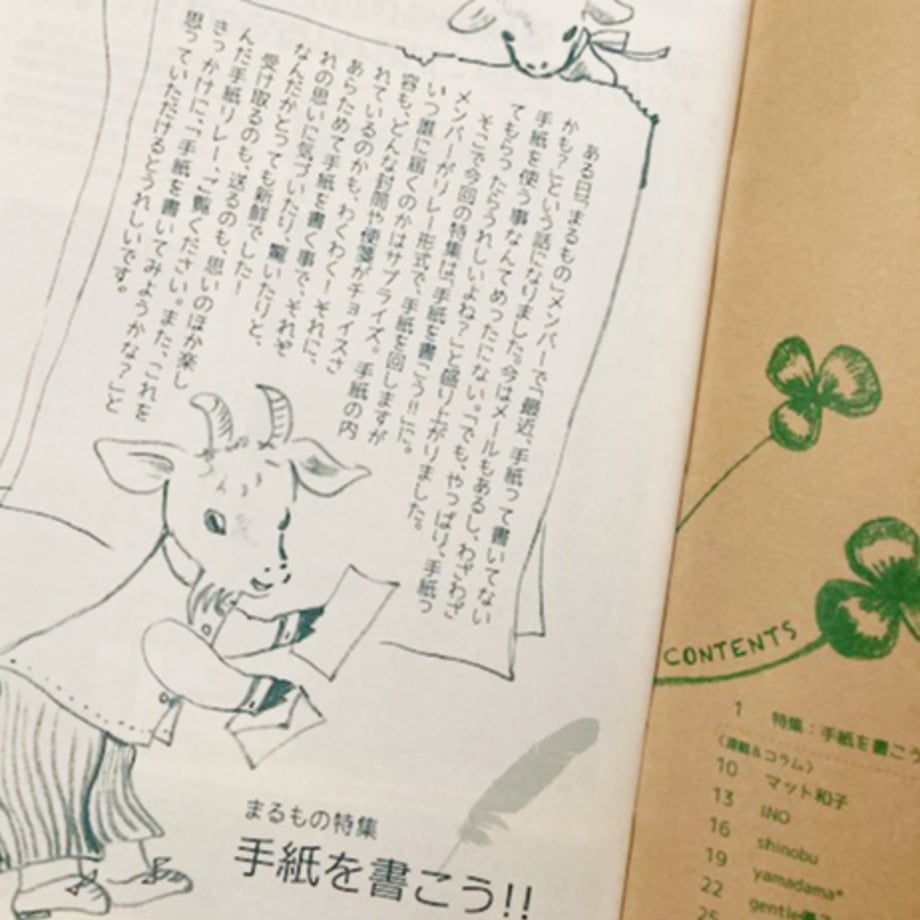 ある日「まるもの」メンバーで「最近、手紙って書いてない
かも?」という話になりました。今はメールもあるし、わざわざ
手紙を使う事なんてめったにない。「でも、やっぱり、手紙っ
てもらったらうれしいよね?」と盛り上がりました。
そこで今回の特集は「手紙を書こう!!」に。
メンバーがリレー形式で、手紙を回しますが
いつ誰に届くのかはサプライズ。手紙の内
容も、どんな封筒や便箋がチョイスさ
れているのかも、わくわく!それに、
あらためて手紙を書く事で、それぞ
れの思いに気づいたり、驚いたりと、
なんだかとっても新鮮でした!
受け取るのも、送るのも、思いのほか楽し
んだ手紙リレー、ご覧ください。また、これを
きっかけに、「手紙を書いてみようかな?」と
思っていただけるとうれしいです。
まるもの特集
手紙を書こう!!
CONTENTS
1 特集:手紙を書こう
(連載&コラム)
10 マット和子
13 INO
16 shinobu
19 yamadama*
22 gentle
25